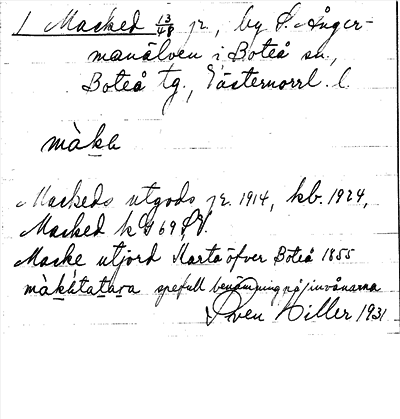 1 Macked 13/48 jr, by S. Ånger-
manälven i Boteå sn,
Boteå tg, Västernorrl. l.
màka
Mackeds utgods jr. 1914, kb. 1924,
Macked k G 69 SV.
Macke utjord Karta öfver Boteå 1855
màkatatara spefull benämning på invånarna
Sven Hiller 1931